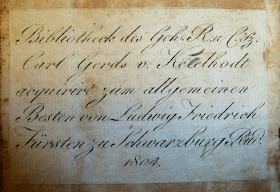 Bibliotheck des Geh. R. u. Cztz.
Carl Gerds v. Ketelhodt
acquirirt zum allgemeinen
Besten von Ludwig Friedrich
Fürsten zu Schwarzburg Rud.
1804.